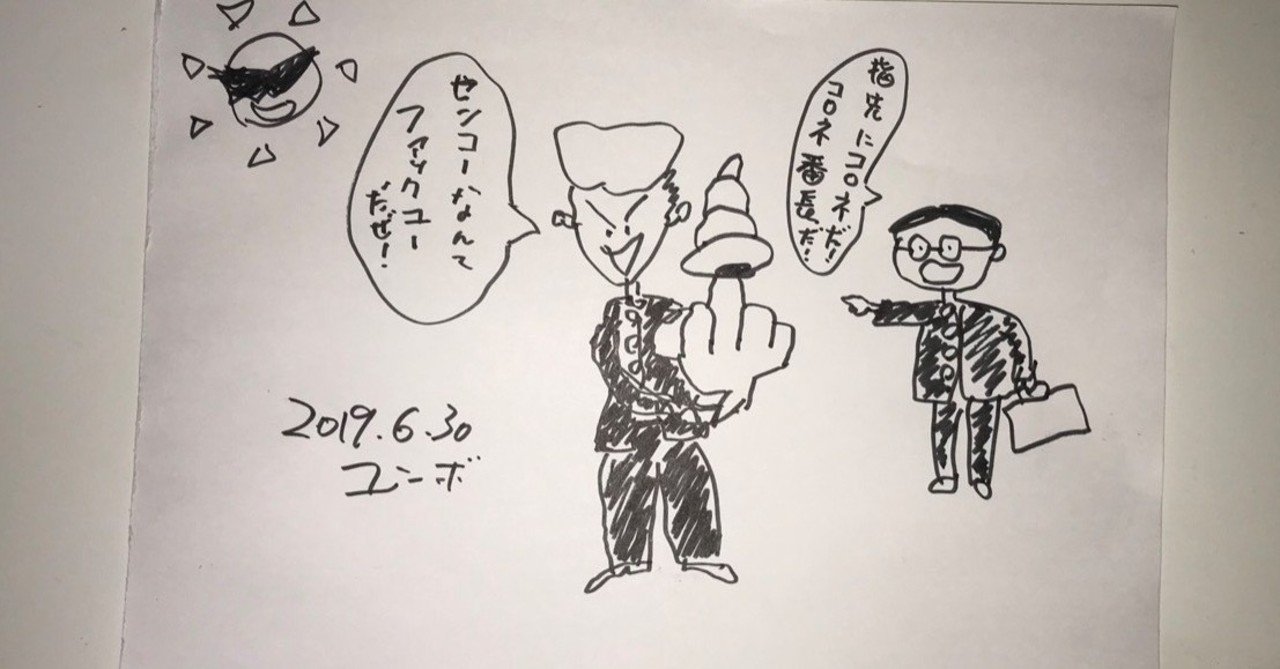 センコーなんて
ファックユー
だぜ!
指先にコロネだ!
コロネ番長だ!
2019.6.30
ユンボ